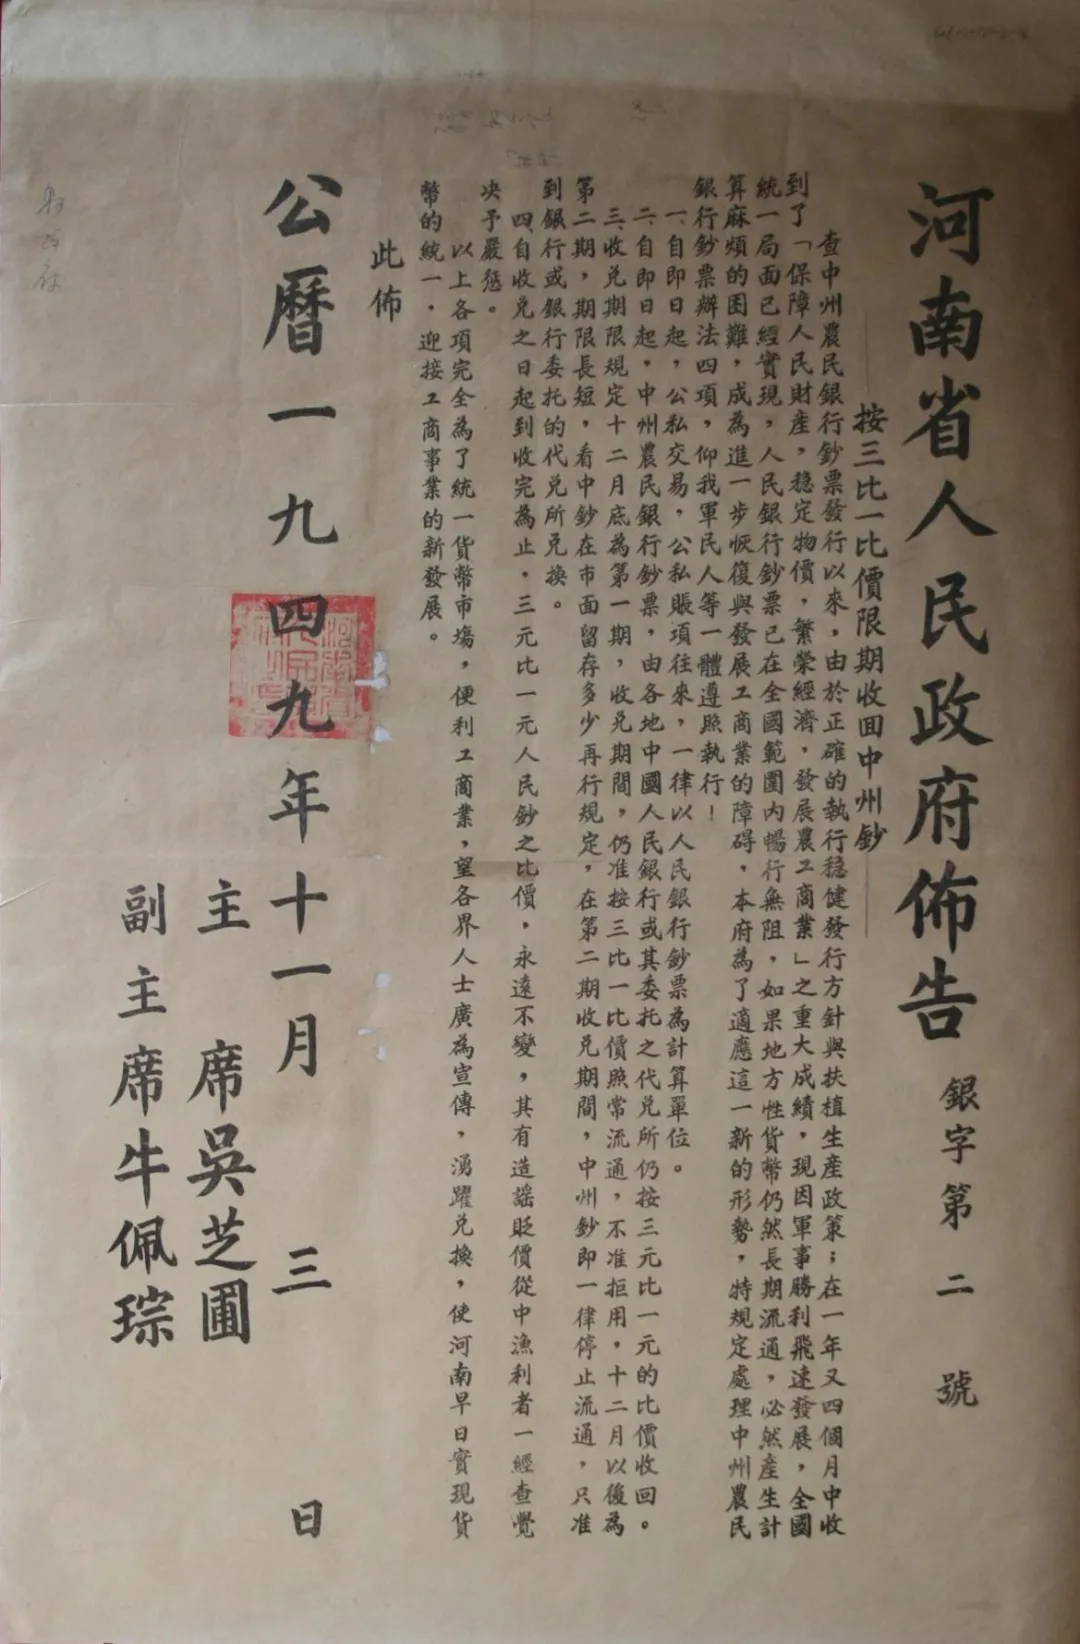 河南省人民政府佈告 銀字第二號
按三比一比價限期收囬中州鈔
查中州農民銀行鈔票發行以來，由於正確的執行穩健發行方針與扶植生產政策；在一年又四個月中收
到了「保障人民財產，穩定物價，繁榮經濟，發展農工商業」之重大成績，現因軍事勝利飛速發展，全國
統一局面已經實現，人民銀行鈔票已在全國範圍內暢行無阻，如果地方性貨幣仍然長期流通，必然產生計
算麻煩的困難，成為進一步恢復與發展工商業的障碍，本府為了適應這一新的形勢，特規定處理中州農民
銀行鈔票辦法四項，仰我軍民人等一體遵照執行！
一、自即日起，公私交易，公私賬項往來，一律以人民銀行鈔票為計算單位。
二、自即日起，中州農民銀行鈔票，由各地中國人民銀行或其委托之代兌所仍按三元比一元的比價收回。
三、收兌期限規定十二月底為第一期，收兌期間，仍准按三比一比價照常流通，不准拒用，十二月以後為
第二期，期限長短，看中鈔在市面留存多少再行規定，在第二期收兌期間，中州鈔即一律停止流通，只准
到銀行或銀行委托的代兌所兌換。
四、自收兌之日起到收完為止，三元比一元人民鈔之比價，永遠不變，其有造謠貶價從中漁利者一經查覺
决予嚴惩。
以上各項完全為了統一貨幣市塲，便利工商業，望各界人士廣為宣傳，湧躍兌換，使河南早日實現貨
幣的統一，迎接工商事業的新發展。
此佈
公曆一九四九年十一月三日
主席吳芝圃
副主席牛佩琮